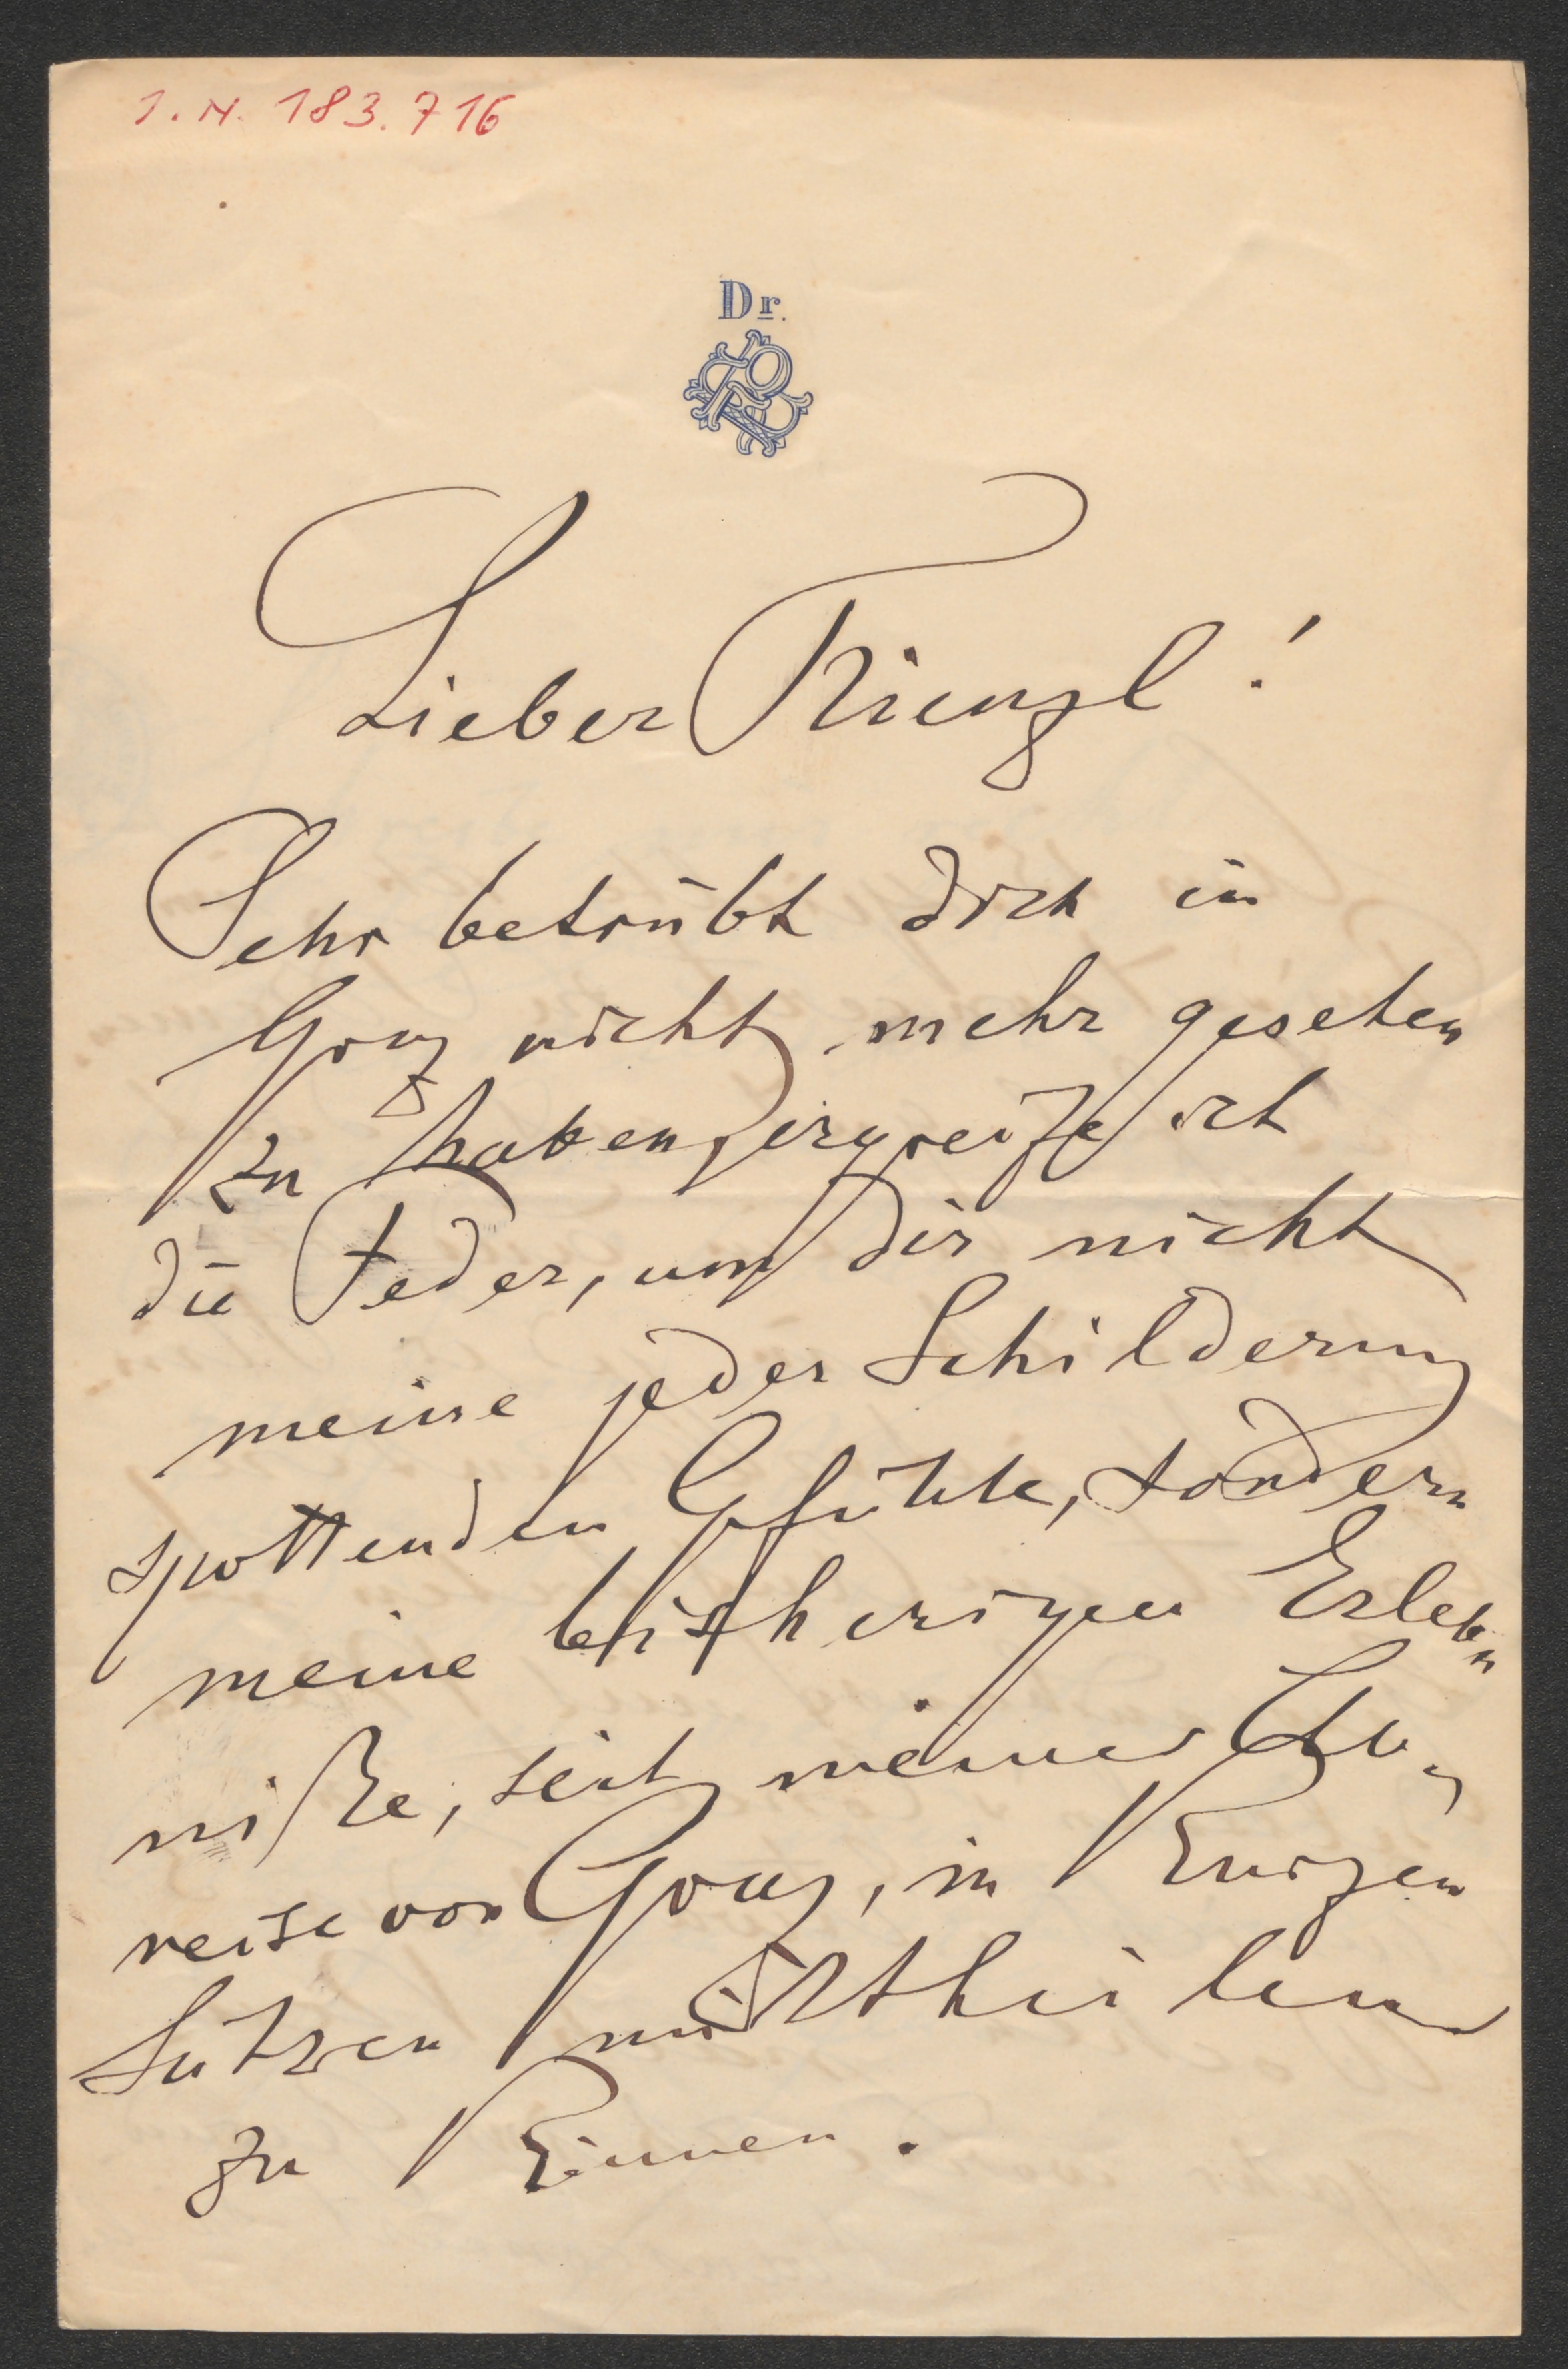 I.N. 183.716
Dr.
Lieber Kienzl!
Sehr betrübt dich in
Graz nicht mehr gesehen
zu haben, ergreife ich
die Feder, um dir nicht
meine jeder Schilderung
spottenden Gfühle, sondern
meine bisherigen Erleb-
niße, seit meiner Ab-
reise von Graz, in kurzen
Sätzen mittheilen
zu können.